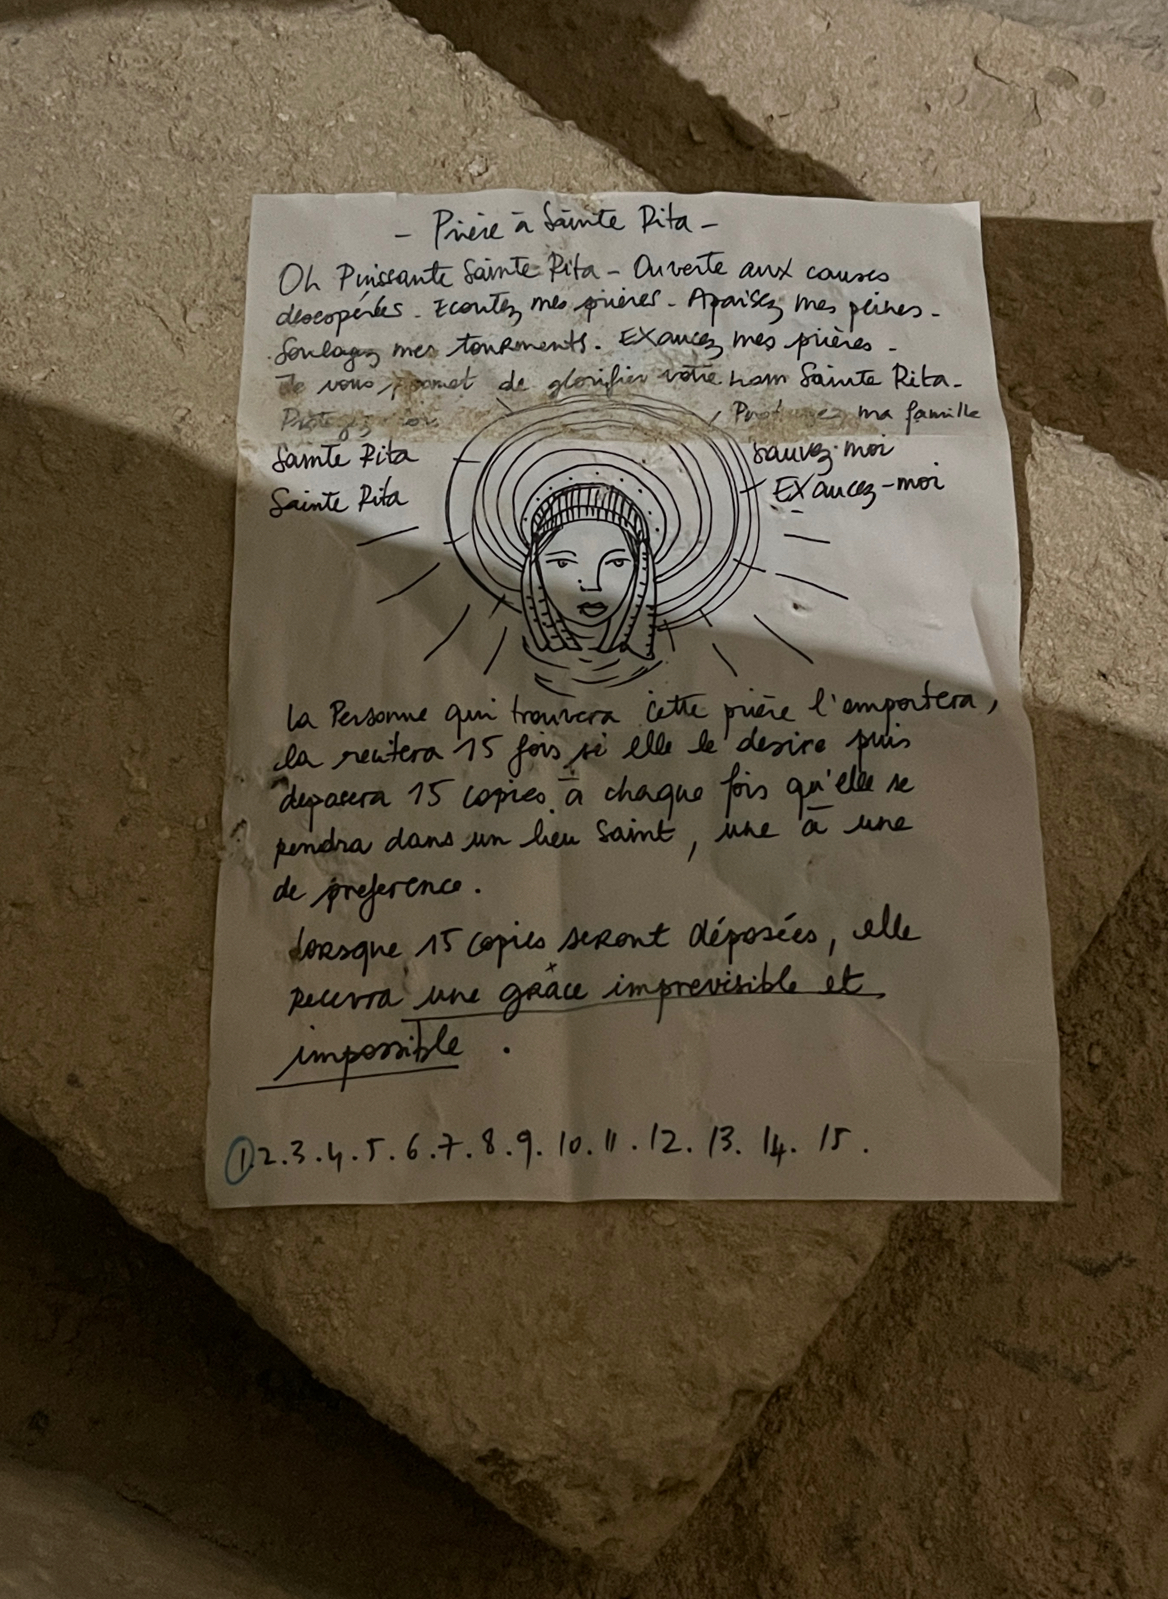 - Prière à Sainte Rita -
Oh Puissante Sainte Rita - Ouverte aux causes
desespérées. Ecoutez mes prières. Apaisez mes peines.
Soulagez mes tourments. EXaucez mes prières -
Je vous promet de glorifier votre nom Sainte Rita -
Protégez ma famille
Sainte Rita sauvez-moi
Sainte Rita EXaucez-moi
la Personne qui trouvera cette prière l'emportera,
la recitera 15 fois si elle le desire puis
deposera 15 copies à chaque fois qu'elle se
rendra dans un lieu Saint, une à une
de preference.
Lorsque 15 copies seront déposées, elle
recevra une grâce imprevisible et
impossible.
1 2.3.4.5.6.7.8.9.10.11.12.13.14.15.